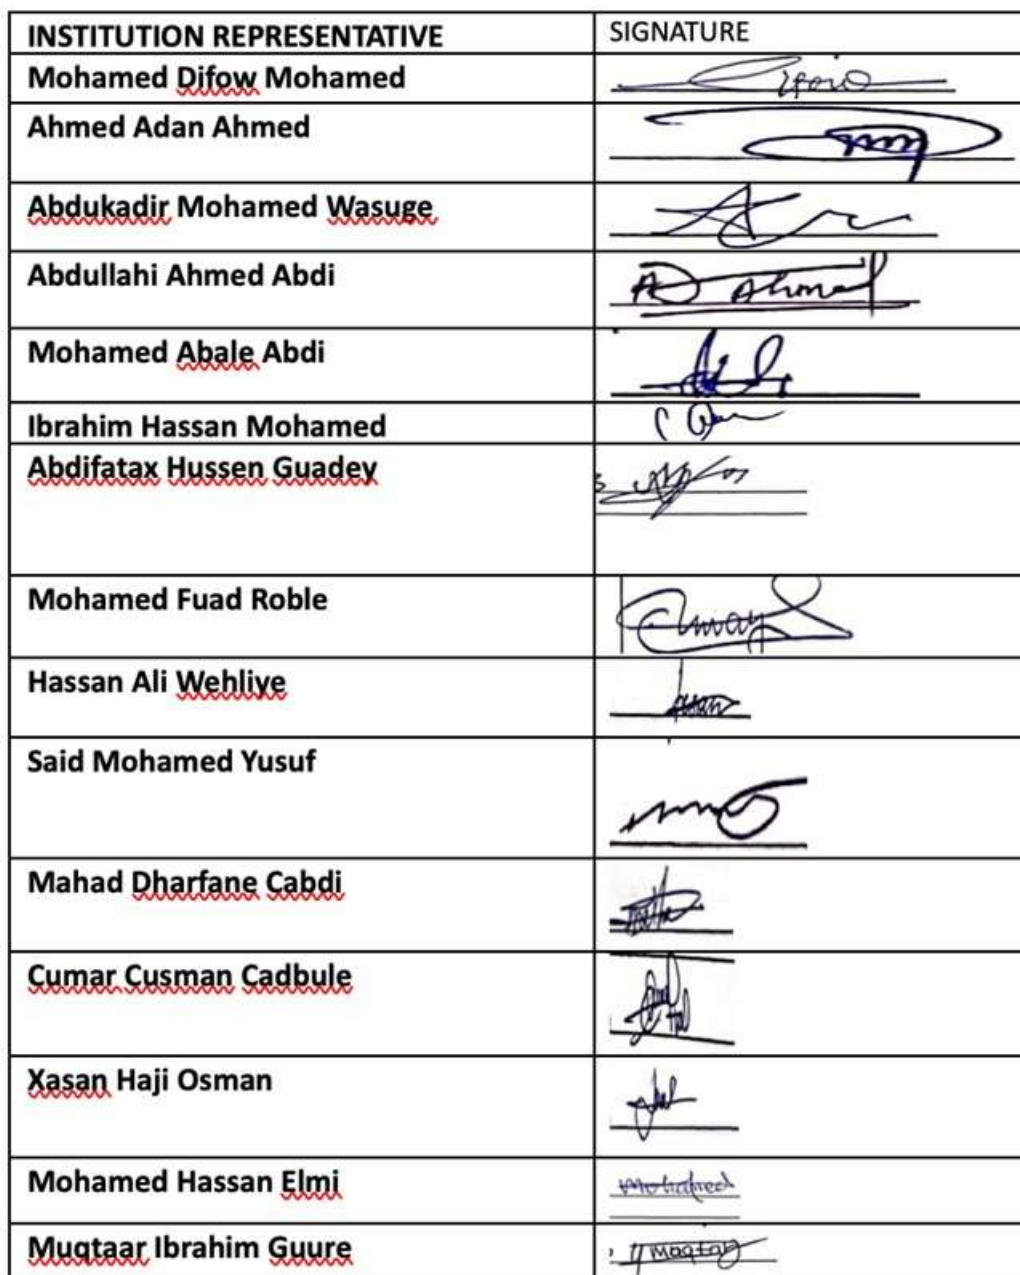 INSTITUTION REPRESENTATIVE SIGNATURE
Mohamed Difow Mohamed
Ahmed Adan Ahmed
Abdukadir Mohamed Wasuge
Abdullahi Ahmed Abdi AD Ahmed
Mohamed Abale Abdi
Ibrahim Hassan Mohamed
Abdifatax Hussen Guadey
Mohamed Fuad Roble
Hassan Ali Wehliye
Said Mohamed Yusuf
Mahad Dharfane Cabdi
Cumar Cusman Cadbule
Xasan Haji Osman
Mohamed Hassan Elmi Mohamed
Muqtaar Ibrahim Guure